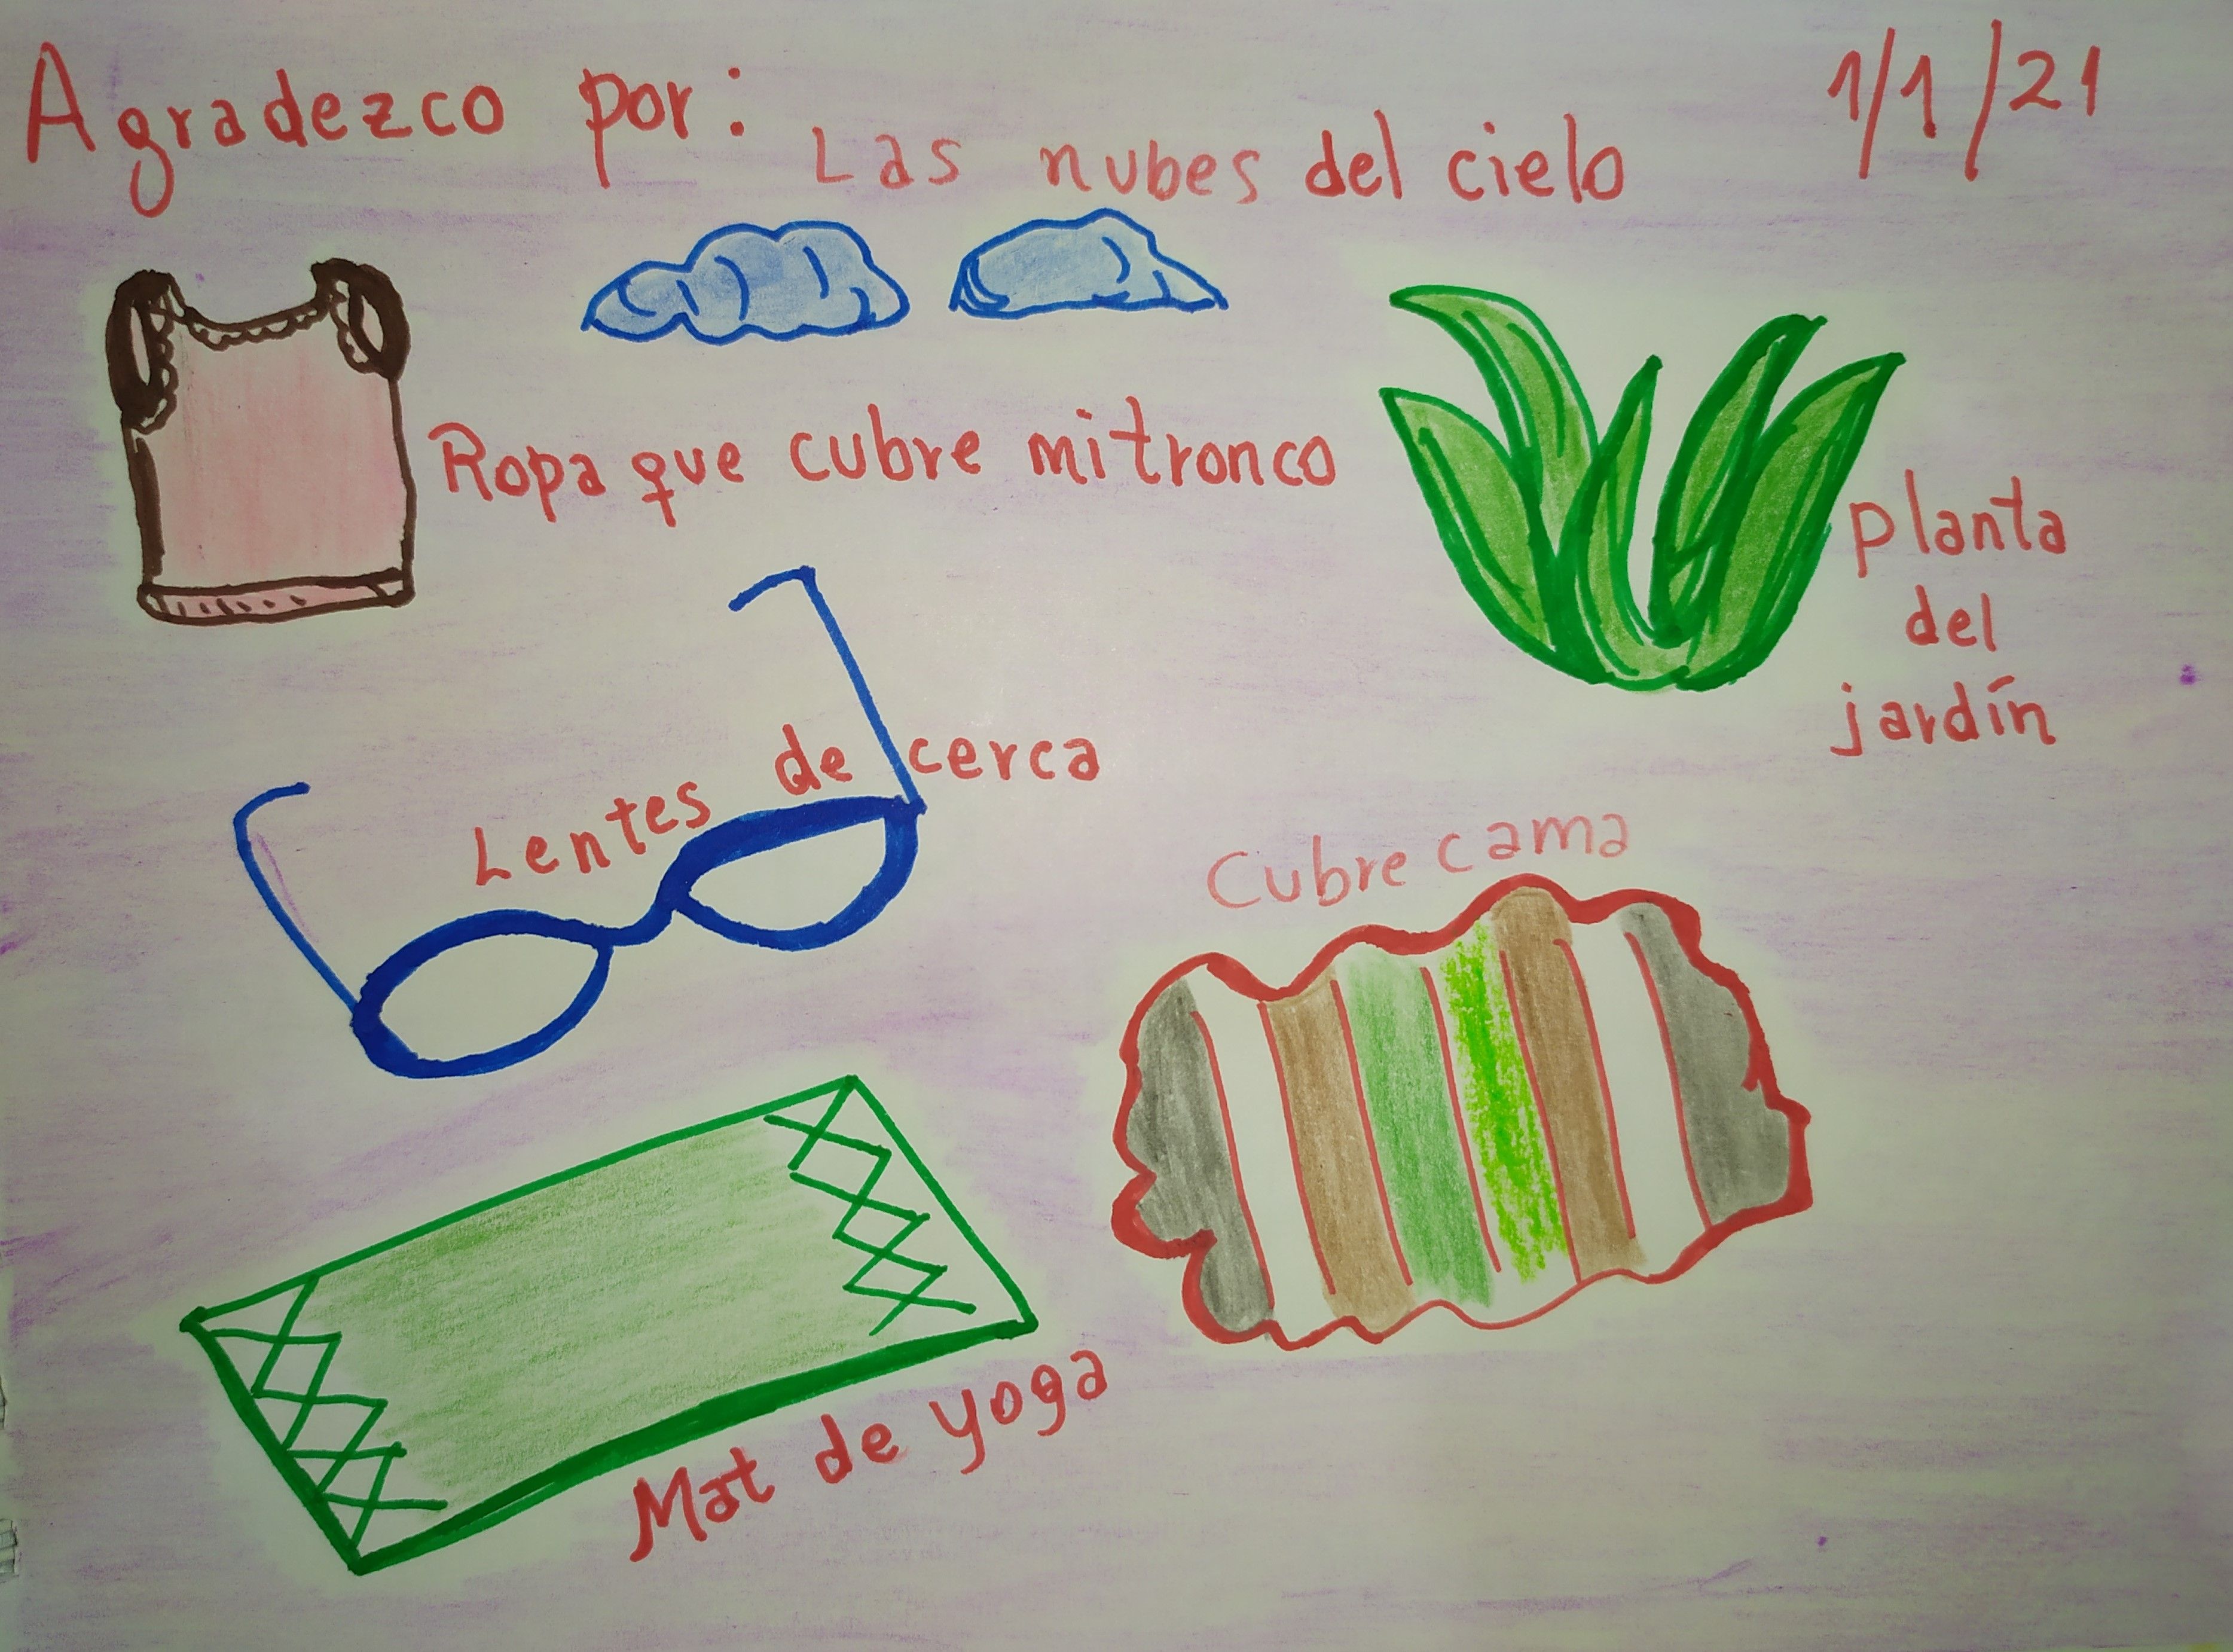 Agradezco por:
1/1/21
Las nubes del cielo
Ropa que cubre mi tronco
planta
del
jardín
Lentes de cerca
Cubre cama
Mat de yoga